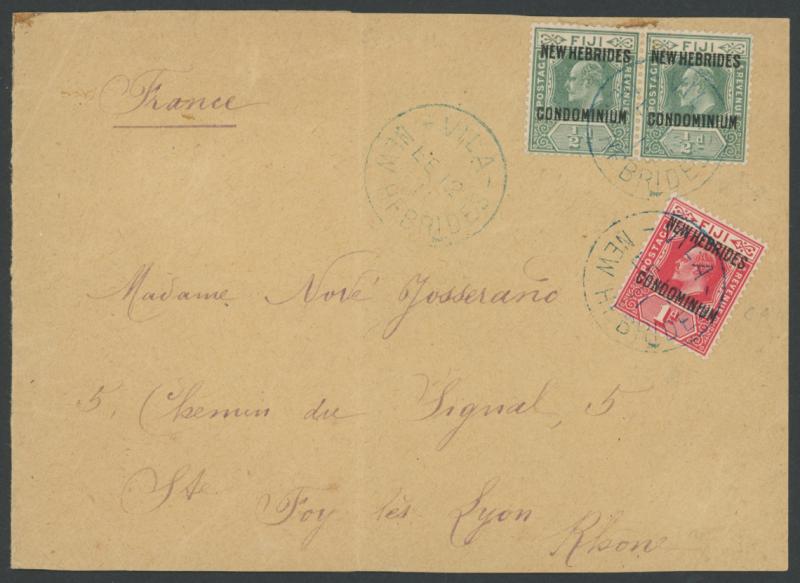 France
FIJI
NEW HEBRIDES
POSTAGE REVENUE
CONDOMINIUM
½d
FIJI
NEW HEBRIDES
POSTAGE REVENUE
CONDOMINIUM
½d
VILA
NEW HEBRIDES
HEBRIDES
FIJI
NEW HEBRIDES
POSTAGE REVENUE
CONDOMINIUM
1d
VILA
NEW HEBRIDES
Madame Nové Josserand
5, Chemin du Signal, 5
Ste Foy lès Lyon
Rhône